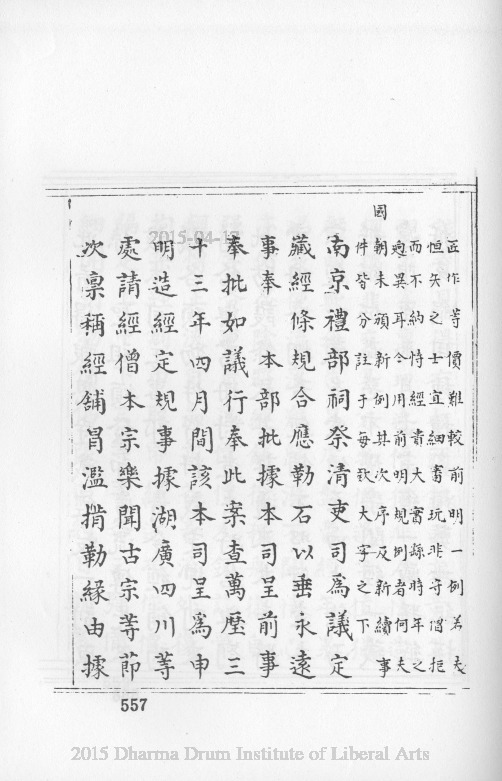 匠作等價難較前明一例若夫
恒矢之士宜細書玩非守僧拒
而不納恃經貴大實縣時年之
逈異耳今用前明規例者何夫
國朝未頒新例其次序及新續事
件皆分註于每欵大字之下
南京禮部祠祭清吏司爲議定
藏經條規合應勒石以垂永遠
事奉本部批據本司呈前事
奉批如議行奉此案查萬曆三
十三年四月間該本司呈爲申
明造經定規事據湖廣四川等
處請經僧本宗樂聞古宗等節
次稟稱經舖冒濫掯勒緣由據
557
2015-04-17
2015 Dharma Drum Institute of Liberal Arts